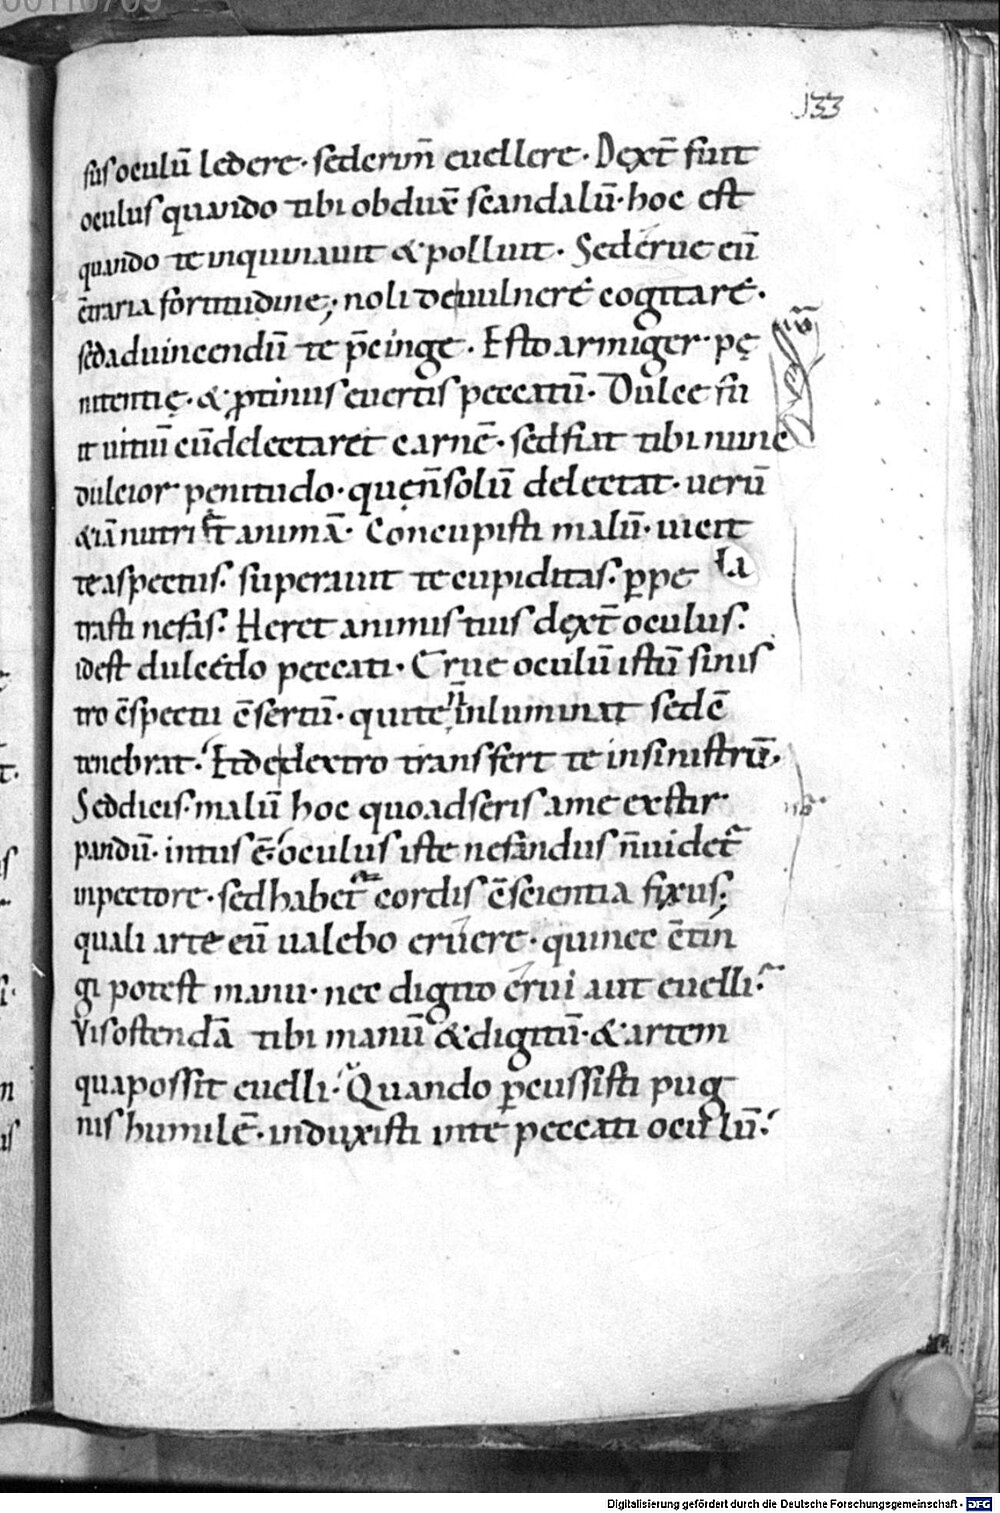 133
sus oculū ledere· sed erum̄ euellere· Dext̄ fuit
oculus quando tibi obdux̄ scandalū· hoc est
quando te inquinauit & polluit· Sed erue eū
c̄traria fortitudine; noli deuulnere cogitare·
sed aduincendū te p̄cinge· Esto armiger pę
nitentię· & ꝓtinus euertis peccatū· Dulce fu
it uitiū cū delectaret carnē· sed fiat tibi nunc
dulcior penitudo· quę n̄ solū delectat· uerū
& iā nutrit animā· Concupisti malū· uicit
te aspectus· superauit te cupiditas· ꝑpe
trasti nefas· Heret animus tuus dext̄ oculus·
idest dulcedo peccati· Erue oculū istū sinis
tro c̄spectu c̄sertū· qui te n̄ inluminat sed c̄
tenebrat· Et de dextro transfert te in sinistrū·
Sed dicis· malū hoc quo adseris a me exstir
pandū· intus ē· oculus iste nefandus n̄ uidet̄
in pectore· sed habet̄ cordis c̄scientia fixus;
quali arte eū ualebo eruere· qui nec c̄tin
gi potest manu· nec digito erui aut euelli·
Vis ostendā tibi manū & digitū· & artem
qua possit euelli· Quando ꝑcussisti pug
nis humilē· induxisti in te peccati oculū·
Digitalisierung gefördert durch die Deutsche Forschungsgemeinschaft - DFG